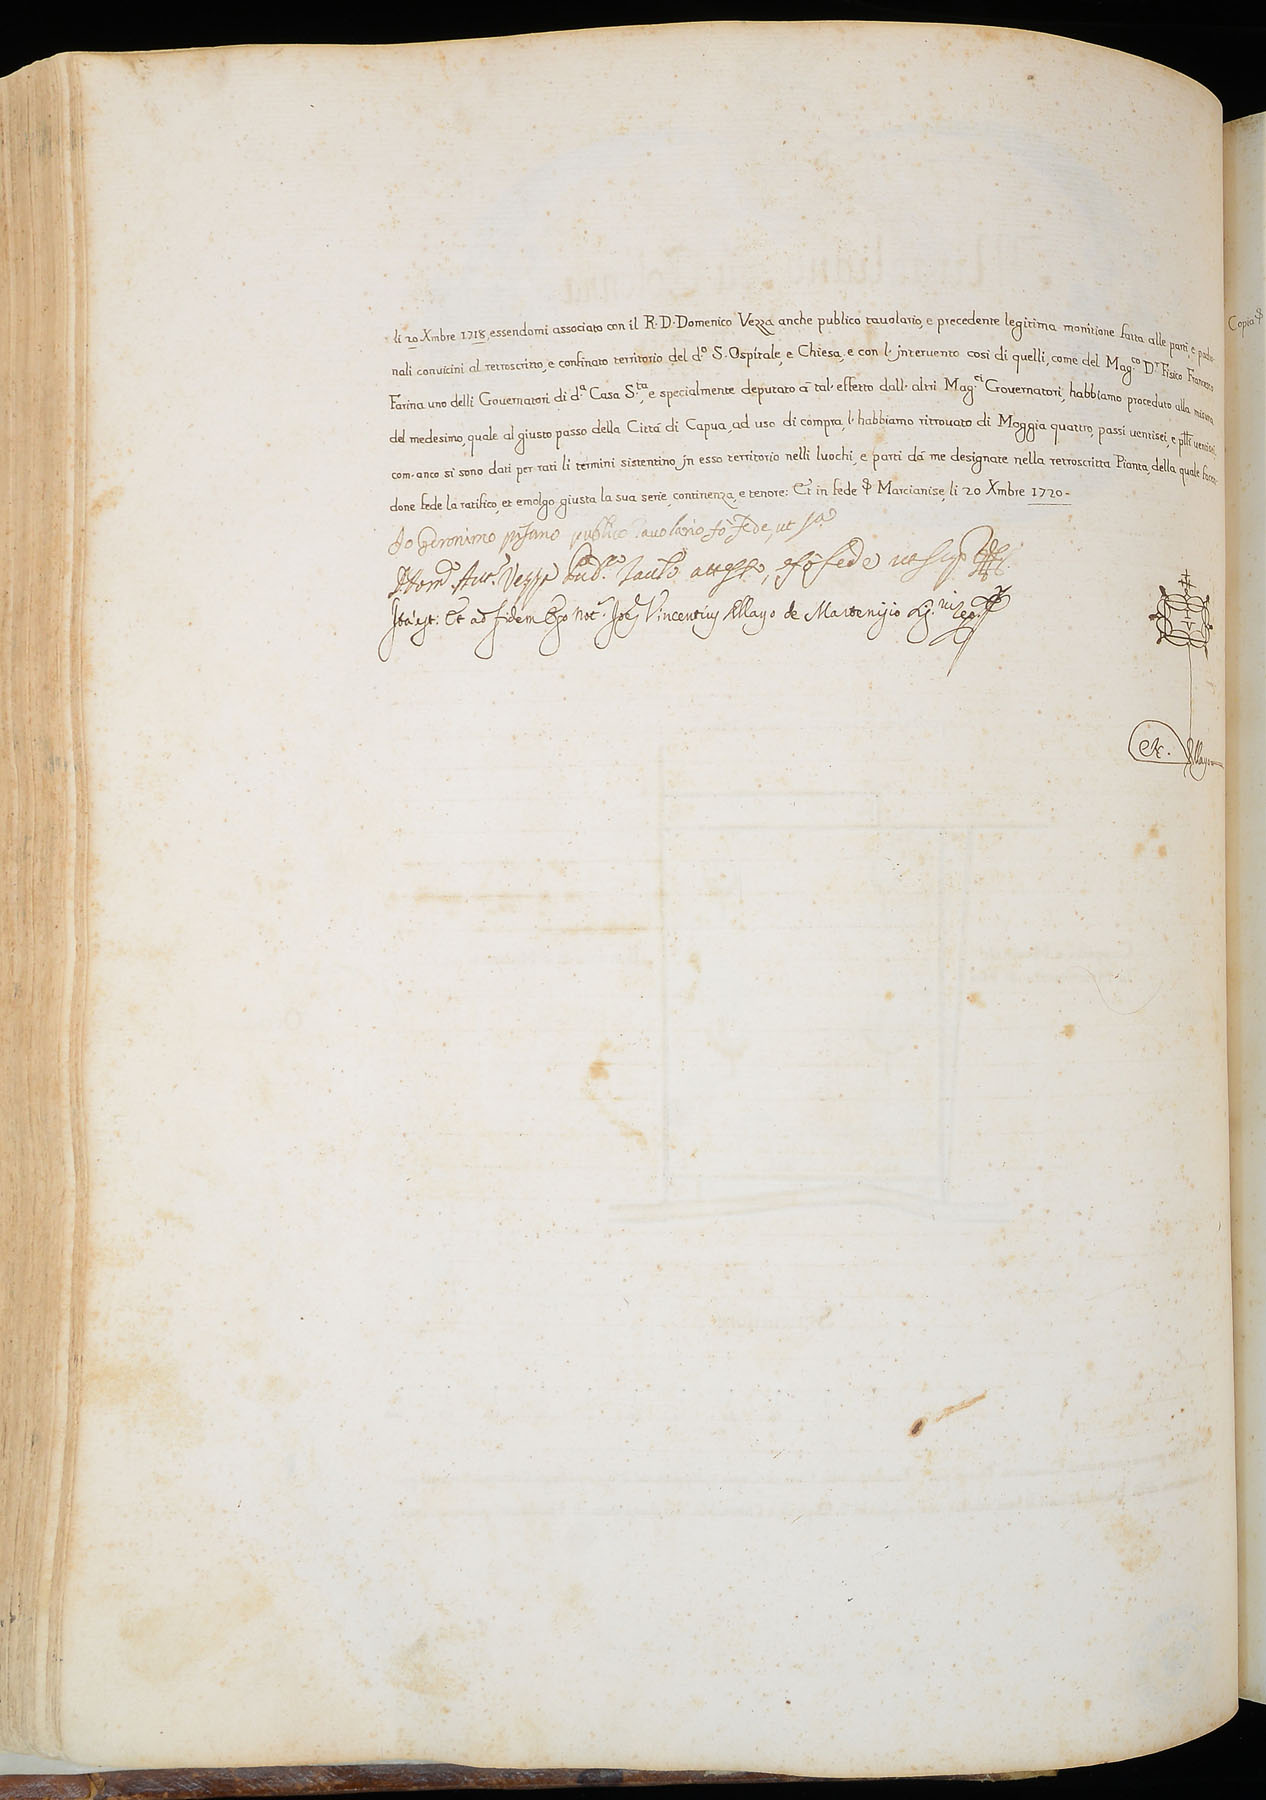 li 20 Xmbre 1718, essendomi associato con il R. D. Domenico Vezza anche publico tauolario, e precedente legitima monitione fatta alle parti, e padro-
nali conuicini al retroscritto, e confinato territorio del d.º S. Ospitale, e Chiesa, e con l' jnteruento cosi di quelli, come del Mag.co D.r Fisico Francesco
Farina uno delli Gouernatori di d.a Casa S.ta, e specialmente deputato à tal' effetto dall' altri Mag.ci Gouernatori, habbiamo proceduto alla misura
del medesimo, quale al giusto passo della Città di Capua, ad uso di compra, l' habbiamo ritrouato di Moggia quattro, passi uentisei, e uentisei,
com' anco si sono dati per rati li termini sistentino jn esso territorio nelli luochi, e parti dà me designate nella retroscritta Pianta, della quale facen-
done fede la ratifico, et emolgo giusta la sua serie, continenza, e tenore: Et in fede Marcianise, li 20 Xmbre 1720 -
Io Geronimo pisano publico tauolario fò fede, ut s.a
Ant.o Vezza Pub.co Taul.o attesto, e fò fede ut sup.a
Ita est: Et ad fidem Ego Not.s Vincentius Allayo de
&c. Allayo
Copia